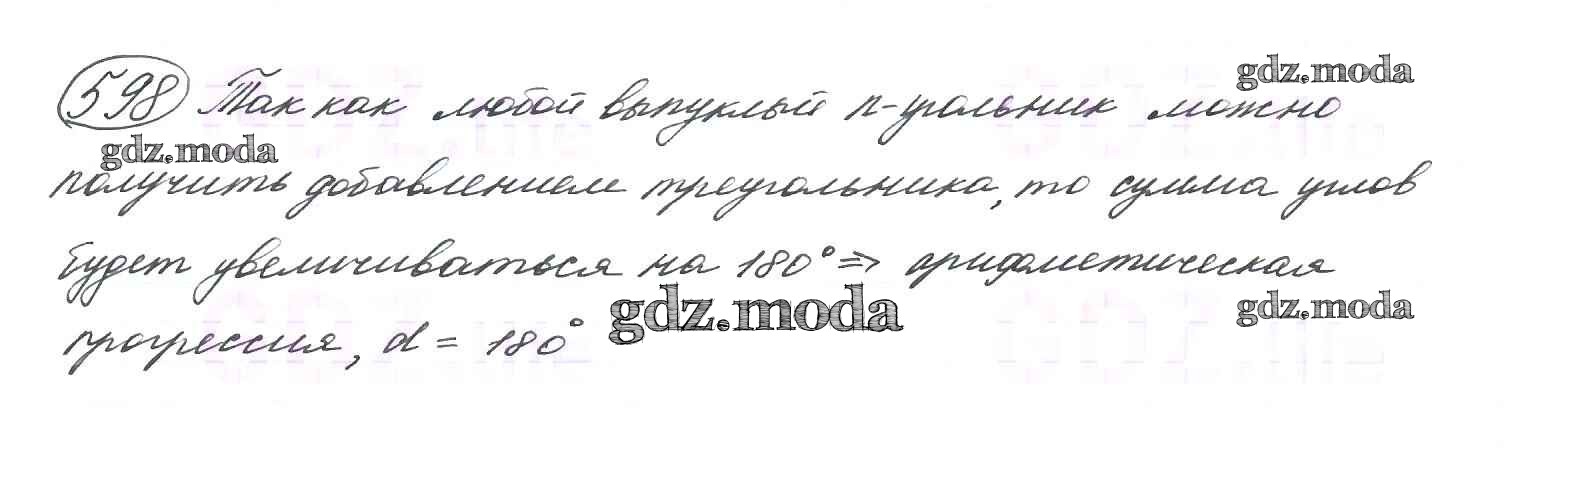 598 Так как любой выпуклый n-угольник можно
получить добавлением треугольника, то сумма углов
будет увеличиваться на 180° ⇒ арифметическая
прогрессия, d = 180°
gdz.moda
gdz.moda
gdz.moda
gdz.moda